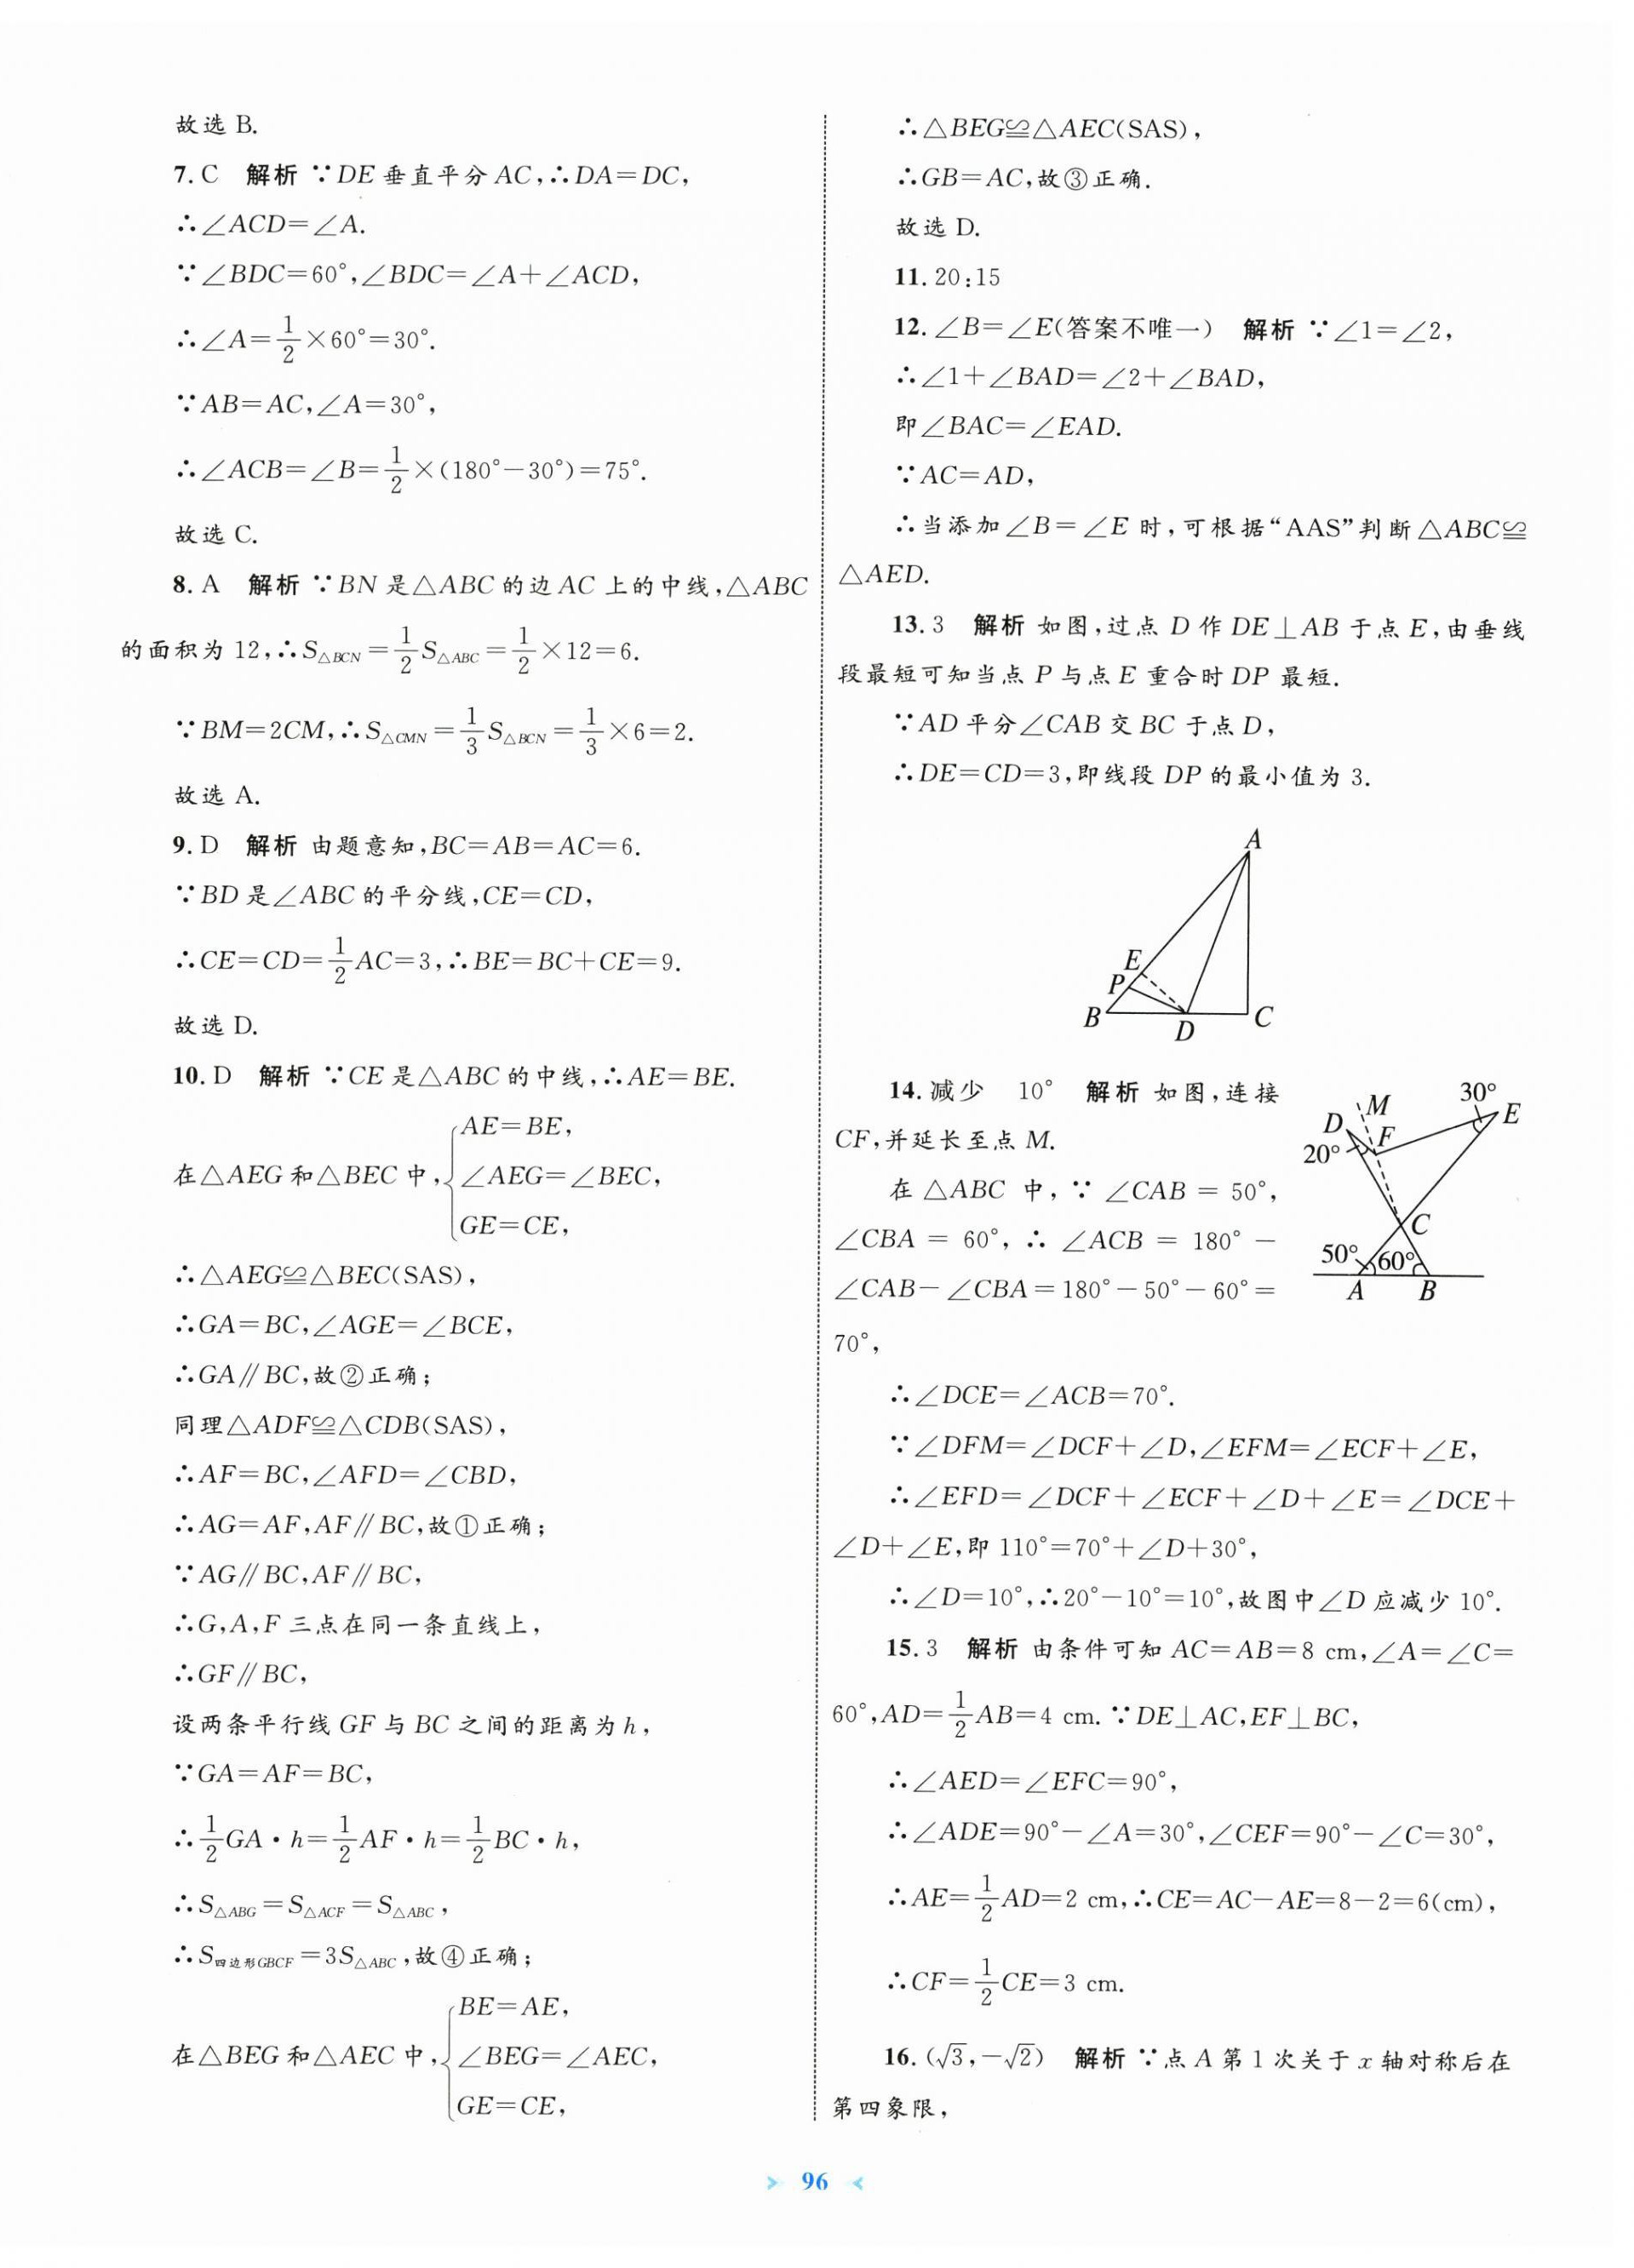 故选 B.
7. C 解析 ∵DE 垂直平分 AC,∴DA=DC,
∴∠ACD=∠A.
∵∠BDC=60°,∠BDC=∠A+∠ACD,
∴∠A=1/2×60°=30°.
∵AB=AC,∠A=30°,
∴∠ACB=∠B=1/2×(180°-30°)=75°.
故选 C.
8. A 解析 ∵BN 是△ABC 的边 AC 上的中线,△ABC
的面积为 12,∴S△BCN=1/2S△ABC=1/2×12=6.
∵BM=2CM,∴S△CMN=1/3S△BCN=1/3×6=2.
故选 A.
9. D 解析 由题意知,BC=AB=AC=6.
∵BD 是∠ABC 的平分线,CE=CD,
∴CE=CD=1/2AC=3,∴BE=BC+CE=9.
故选 D.
10. D 解析 ∵CE 是△ABC 的中线,∴AE=BE.
AE=BE,
在△AEG 和△BEC 中,{∠AEG=∠BEC,
GE=CE,
∴△AEG≌△BEC(SAS),
∴GA=BC,∠AGE=∠BCE,
∴GA∥BC,故②正确;
同理△ADF≌△CDB(SAS),
∴AF=BC,∠AFD=∠CBD,
∴AG=AF,AF∥BC,故①正确;
∵AG∥BC,AF∥BC,
∴G,A,F 三点在同一条直线上,
∴GF∥BC,
设两条平行线 GF 与 BC 之间的距离为 h,
∵GA=AF=BC,
∴1/2GA·h=1/2AF·h=1/2BC·h,
∴S△ABG=S△ACF=S△ABC,
∴S四边形GBCF=3S△ABC,故④正确;
BE=AE,
在△BEG 和△AEC 中,{∠BEG=∠AEC,
GE=CE,
∴△BEG≌△AEC(SAS),
∴GB=AC,故③正确.
故选 D.
11. 20:15
12. ∠B=∠E(答案不唯一) 解析 ∵∠1=∠2,
∴∠1+∠BAD=∠2+∠BAD,
即∠BAC=∠EAD.
∵AC=AD,
∴当添加∠B=∠E 时,可根据“AAS”判断△ABC≌
△AED.
13. 3 解析 如图,过点 D 作 DE⊥AB 于点 E,由垂线
段最短可知当点 P 与点 E 重合时 DP 最短.
∵AD 平分∠CAB 交 BC 于点 D,
∴DE=CD=3,即线段 DP 的最小值为 3.
A
E
P
B
D
C
14. 减少 10° 解析 如图,连接
CF,并延长至点 M.
在 △ABC 中,∵ ∠CAB = 50°,
∠CBA = 60°, ∴ ∠ACB = 180° -
∠CAB-∠CBA=180°-50°-60°=
70°,
M
30°
D
E
F
20°
C
50°
60°
A
B
∴∠DCE=∠ACB=70°.
∵∠DFM=∠DCF+∠D,∠EFM=∠ECF+∠E,
∴∠EFD=∠DCF+∠ECF+∠D+∠E=∠DCE+
∠D+∠E,即 110°=70°+∠D+30°,
∴∠D=10°,∴20°-10°=10°,故图中∠D 应减少 10°.
15. 3 解析 由条件可知 AC=AB=8 cm,∠A=∠C=
60°,AD=1/2AB=4 cm.∵DE⊥AC,EF⊥BC,
∴∠AED=∠EFC=90°,
∴∠ADE=90°-∠A=30°,∠CEF=90°-∠C=30°,
∴AE=1/2AD=2 cm,∴CE=AC-AE=8-2=6(cm),
∴CF=1/2CE=3 cm.
16. (√3,-√2) 解析 ∵点 A 第 1 次关于 x 轴对称后在
第四象限,
96